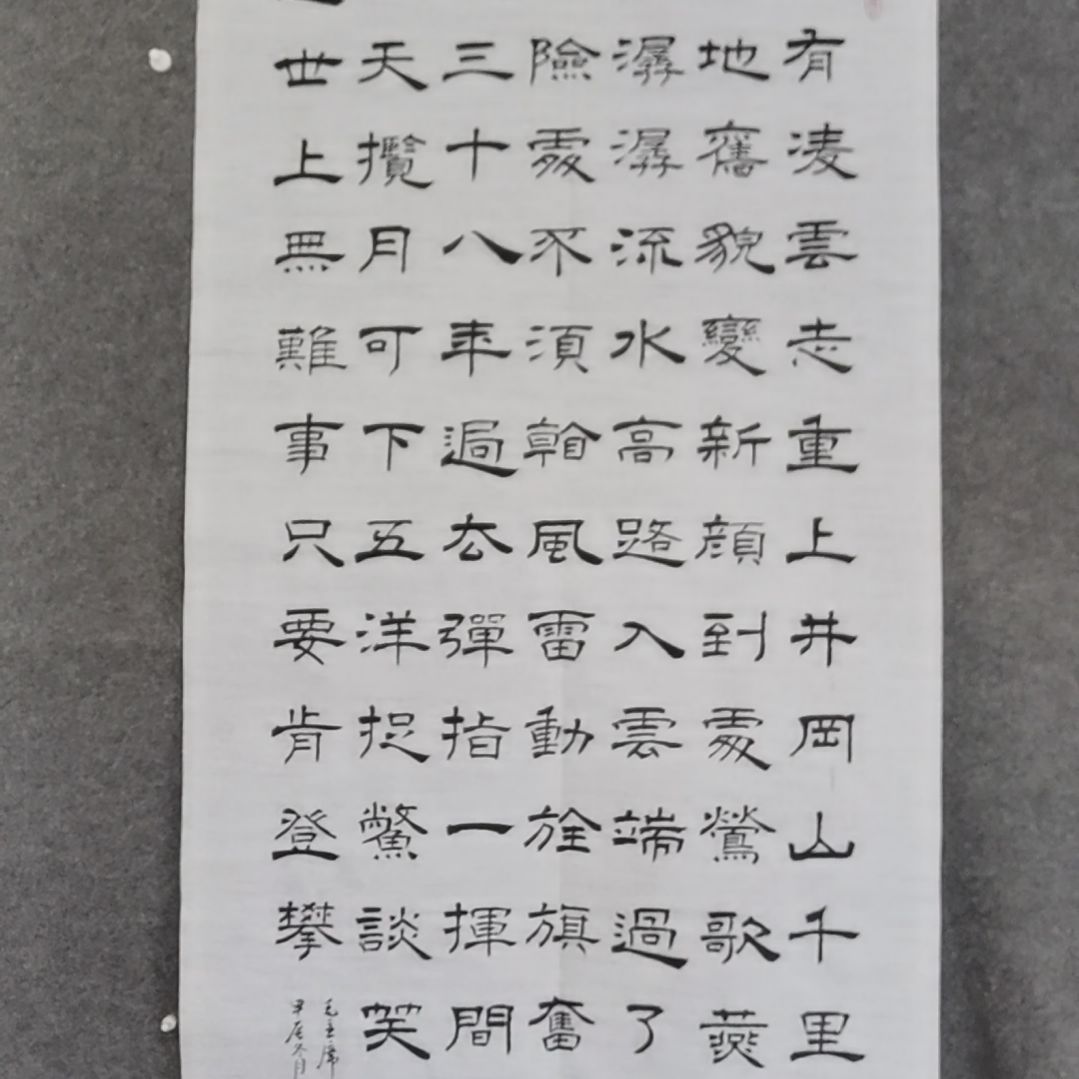 有凌雲志重上井岡山千里
地舊貌變新顔到處鶯歌燕
潺潺流水高路入雲端過了
險處不須看風雷動旌旗奮
三十八年過去彈指一揮間
天攬月可下五洋捉鱉談笑
世上無難事只要肯登攀
毛主席
甲辰冬月